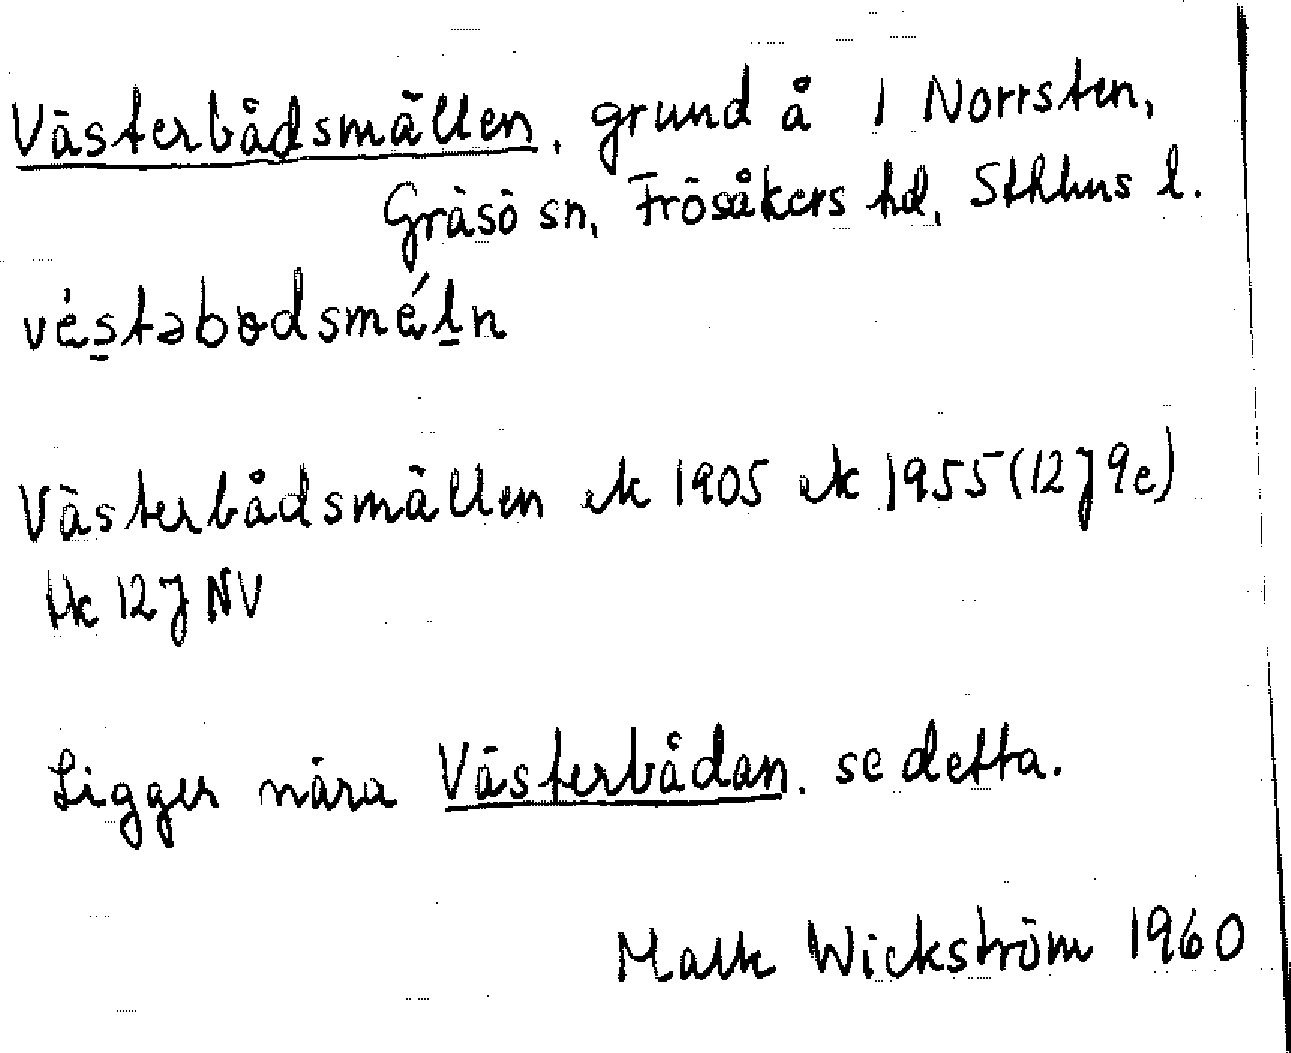 Västerbådsmällen, grund å 1 Norrsten,
Gräsö sn, Frösåkers hd, Sthlms l.
véstəbodsméln
Västerbådsmällen ek 1905 ek 1955 (12J 9e)
tk 12J NV
Ligger nära Västerbådan. se detta.
Wickström 1960